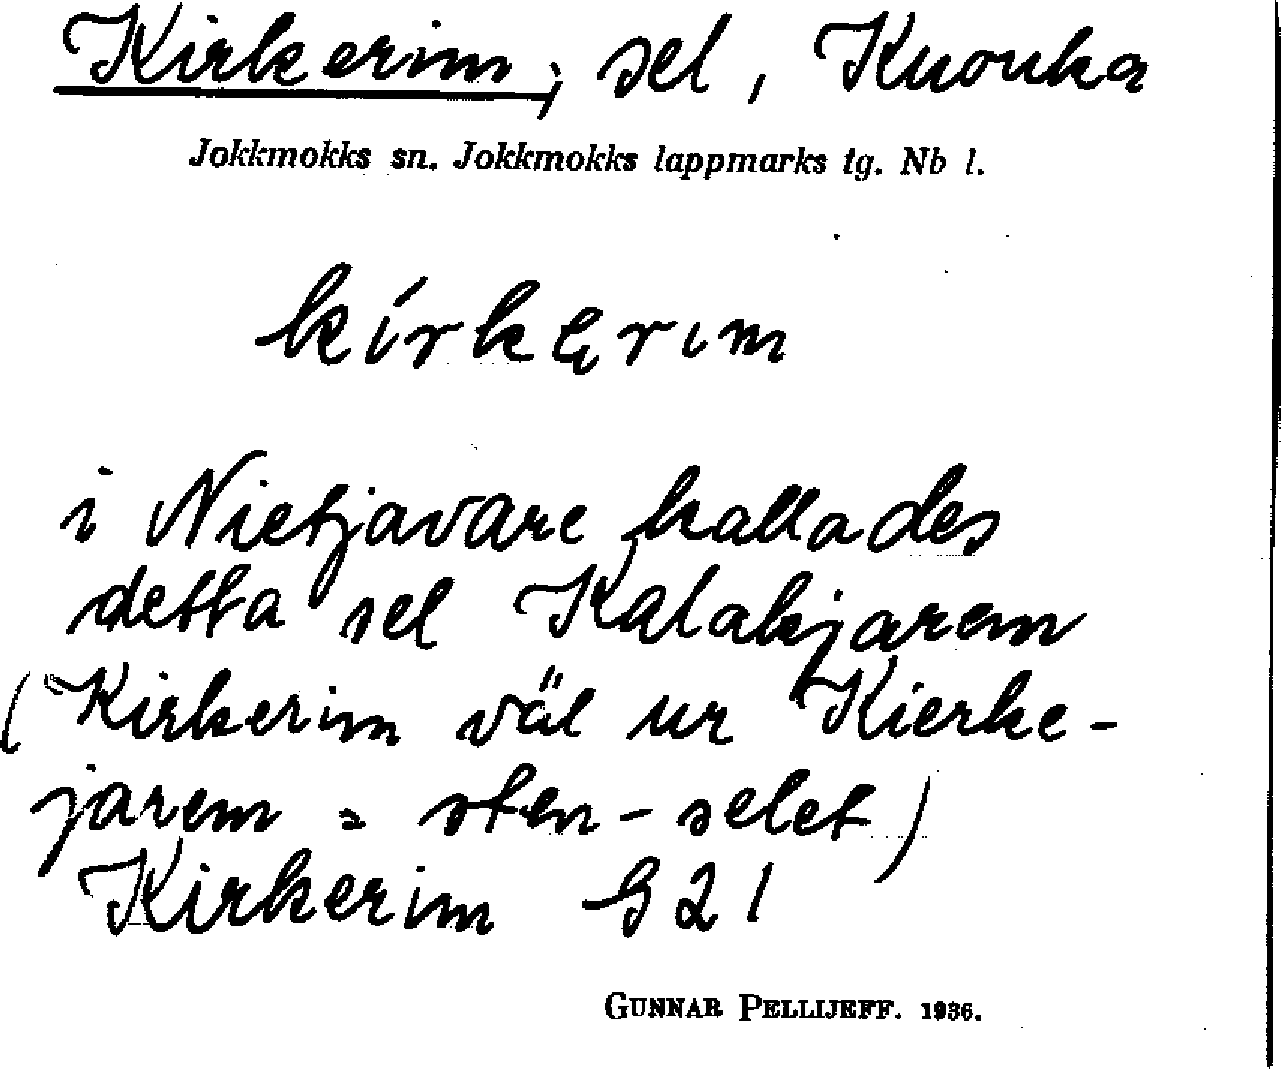 Kirkerim, sel, Knouka
Jokkmokks sn. Jokkmokks lappmarks tg. Nb l.
kírkęrım
i Nietjavare kallades
detta sel Kalakjarem
(Kirkerim väl ur Kierke-
jarem = sten-selet)
Kirkerim 921
GUNNAR PELLIJEFF. 1936.